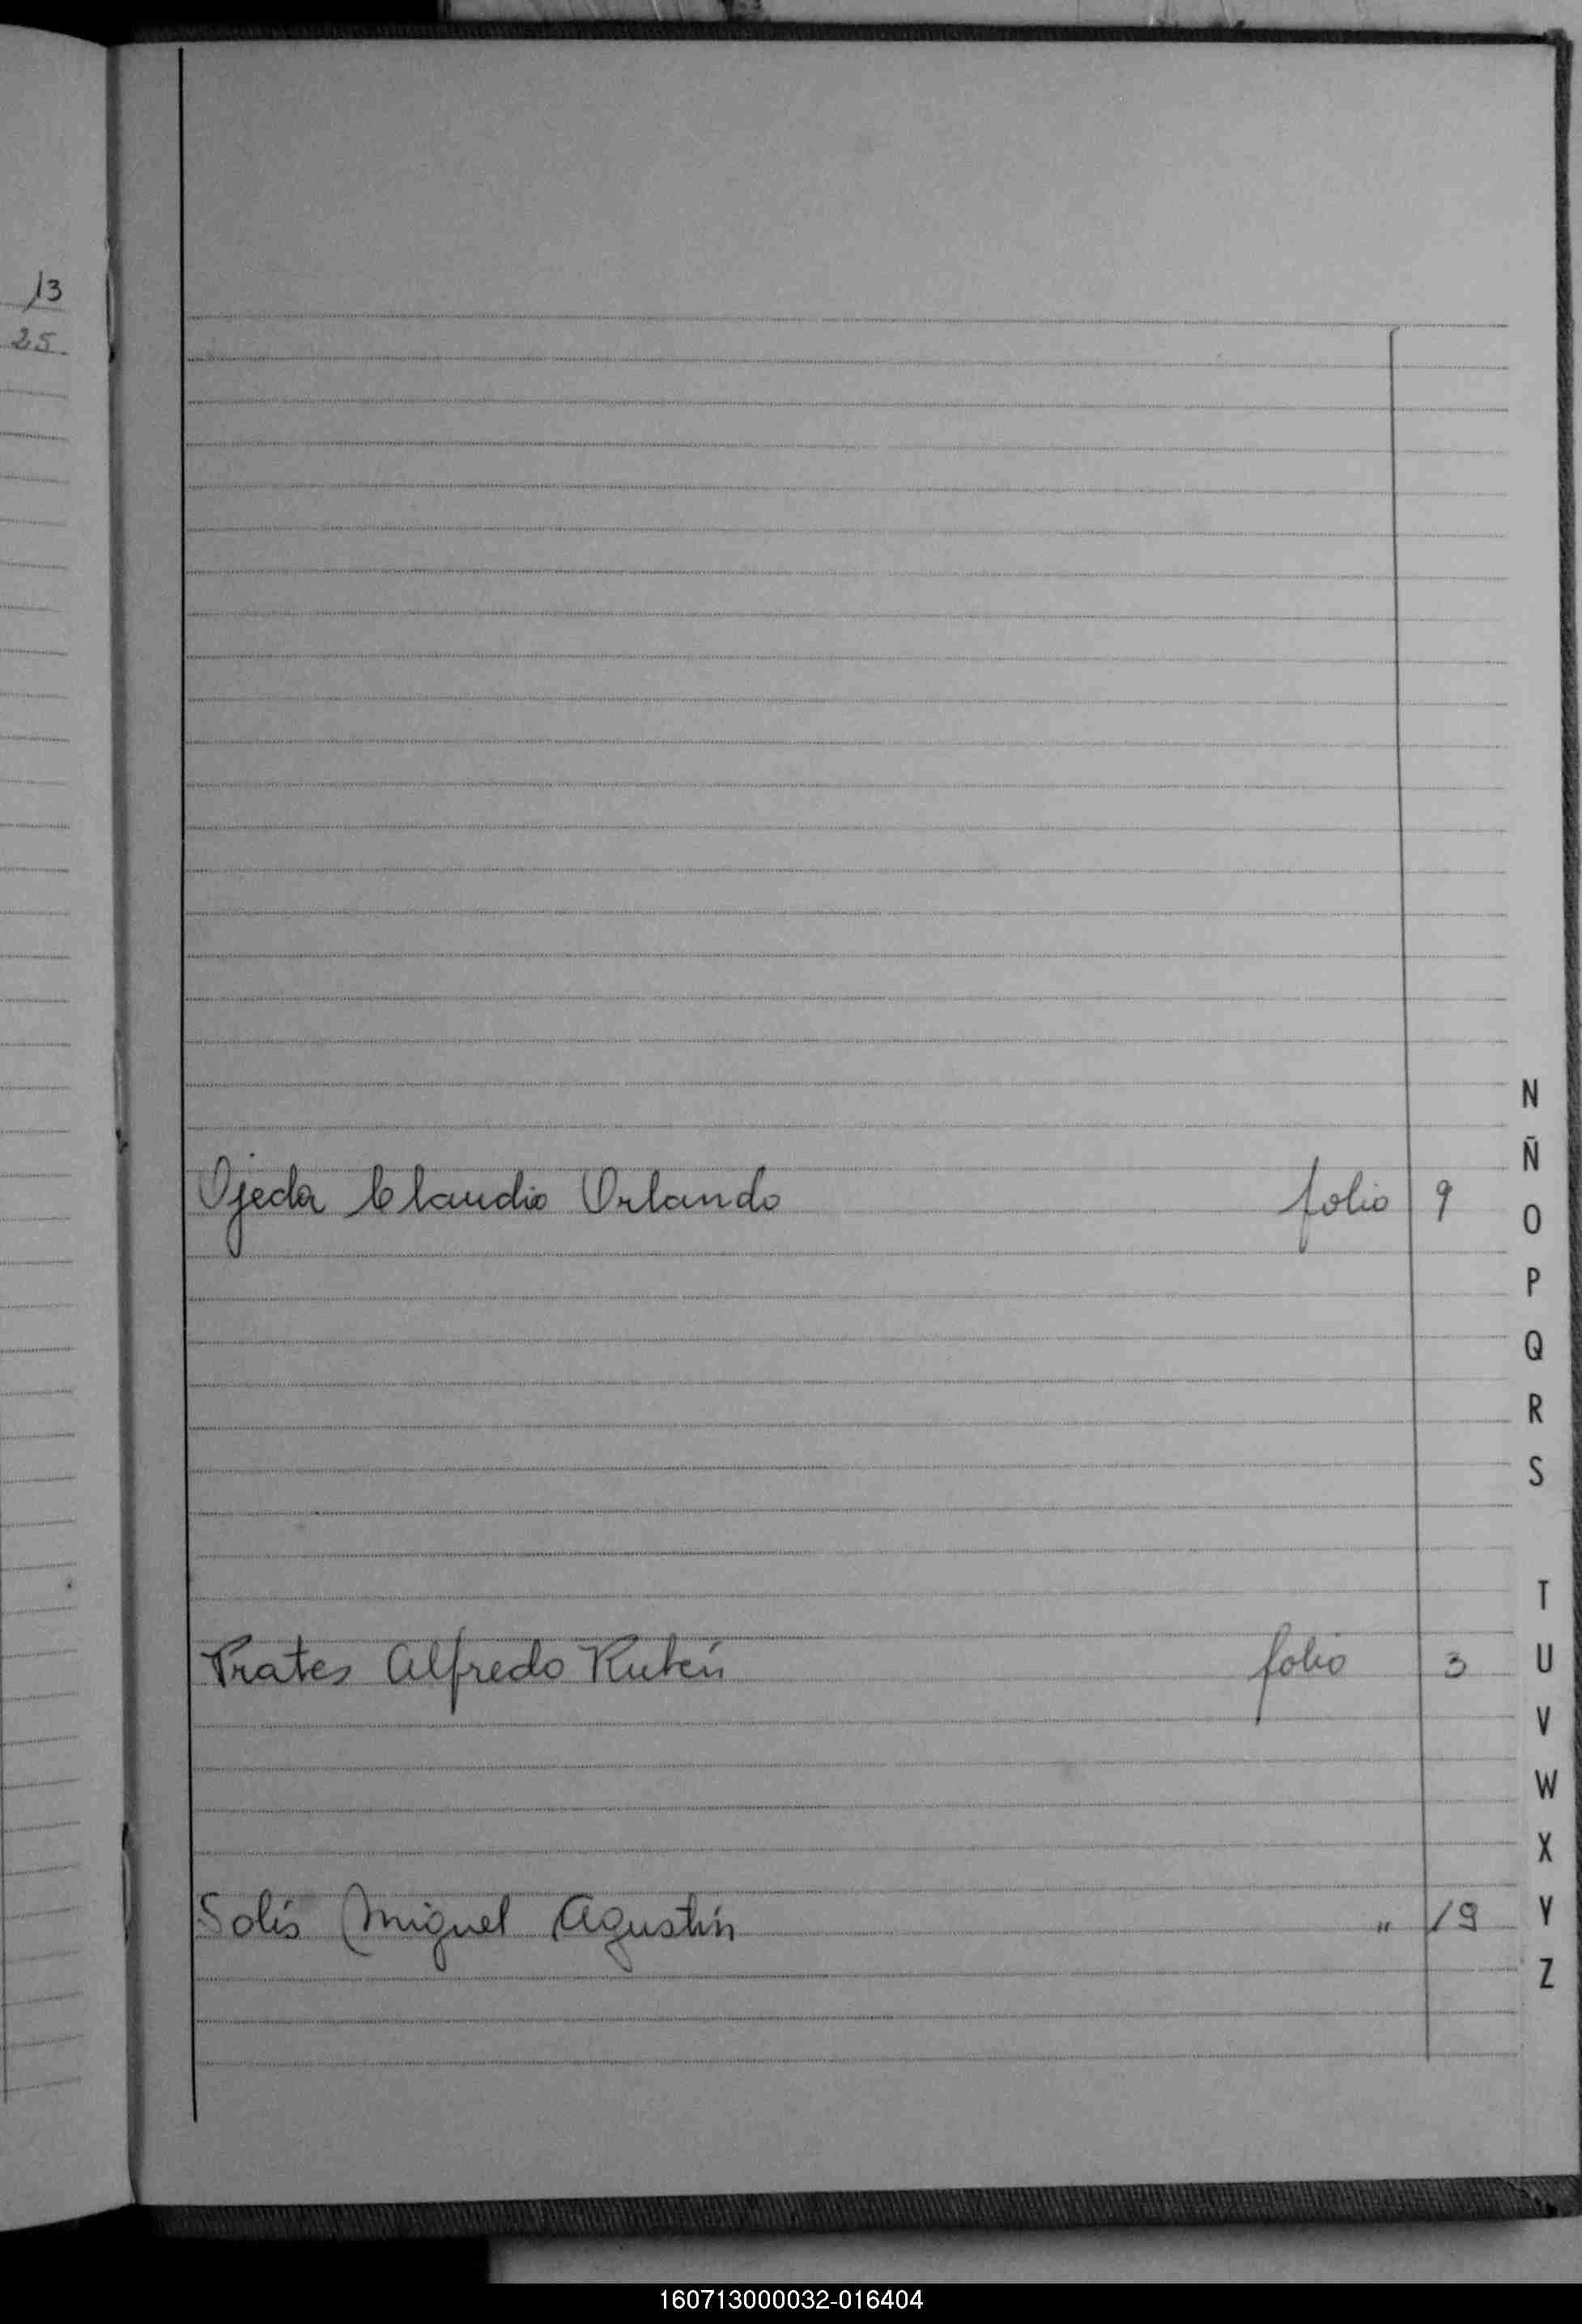 13
25
N
Ñ
Ojeda Claudio Orlando folio 9
O
P
Q
R
S
T
Prates Alfredo Rubén folio 3
U
V
W
X
Solís Miguel Agustín " 19
Y
Z
160713000032-016404